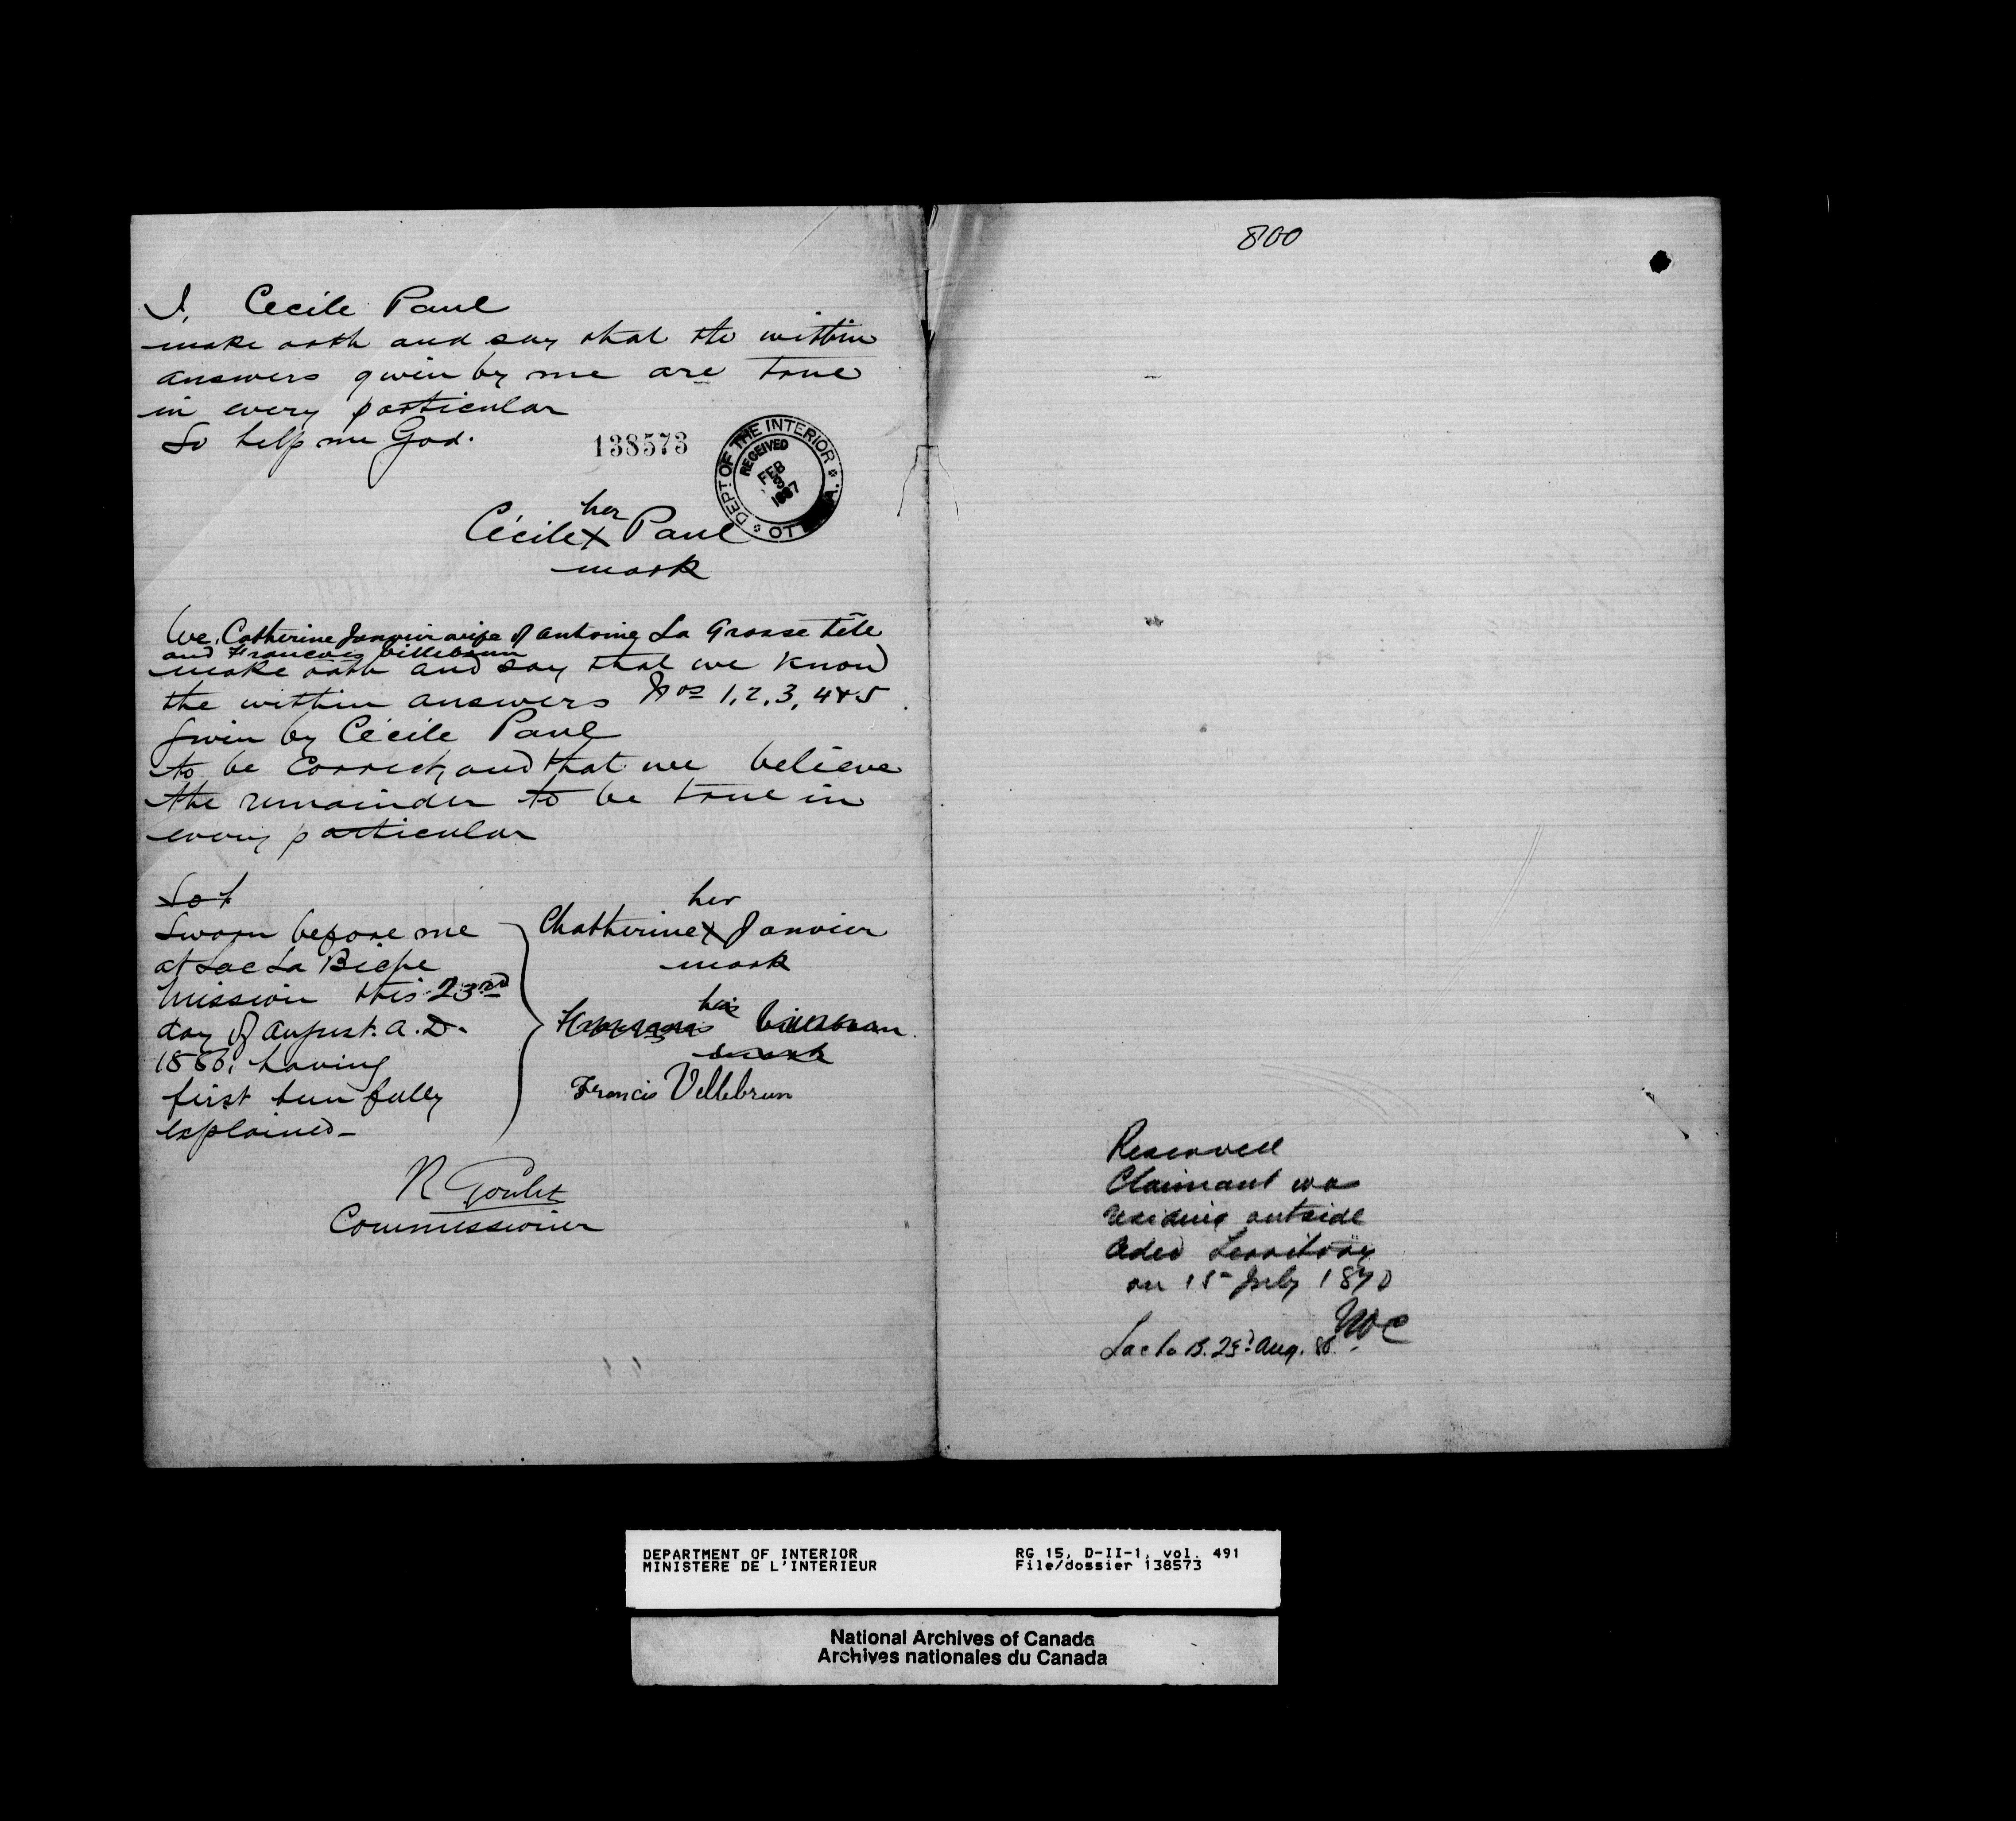 I, Cecile Paul
make oath and say that the within
answers given by me are true
in every particular
So help me God.
138573
DEPT. OF THE INTERIOR
RECEIVED
FEB
3
1887
OTTAWA
her
Cécile X Paul
mark
We, Catherine Janvier wife of Antoine La Grosse tête
and Francois Villebrun
make oath and say that we know
the within answers Nos 1, 2, 3, 4 & 5
given by Cécile Paul
to be correct, and that we believe
the remainder to be true in
every particular
So h
Sworn before me
at Lac La Biche
Mission this 23rd
day of August. A. D.
1886, having
first been fully
explained
her
Chatherine X Janvier
mark
his
mark
Francis Villebrun
R Goulet
Commissioner
800
Reserved
Claimant was
residing outside
Ceded Territory
on 15 July 1870
Lac la B. 23d Aug. 86.
DEPARTMENT OF INTERIOR
MINISTERE DE L'INTERIEUR
RG 15, D-II-1, vol. 491
File/dossier 138573
National Archives of Canada
Archives nationales du Canada